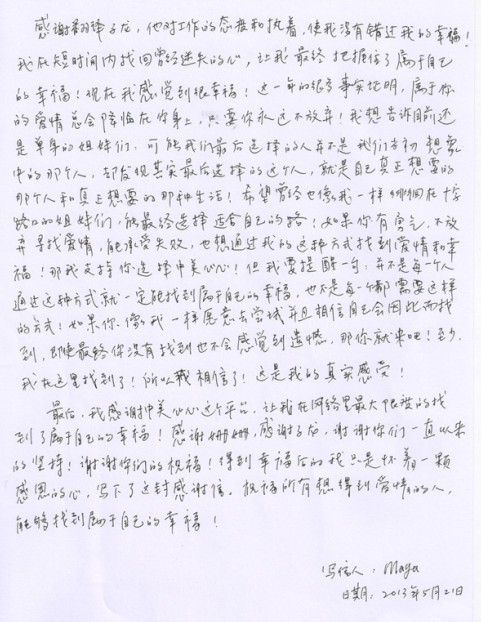 感谢翻译子龙，他对工作的态度和执着，使我没有错过我的幸福！
我在短时间内找回曾经迷失的心，让我最终把握住了属于自己
的幸福！现在我感觉到很幸福！这一年的很多事实证明，属于你
的爱情总会降临在你身上，只要你永远不放弃！我想告诉目前还
是单身的姐妹们，可能我们最后选择的人并不是我们当初想象
中的那个人，却发现其实最后选择的这个人，就是自己真正想要的
那个人和真正想要的那种生活！希望曾经也像我一样徘徊在十字
路口的姐妹们，能最终选择适合自己的路！如果你有勇气，不放
弃寻找爱情，能承受失败，也想通过我的这种方式找到爱情和幸
福！那我支持你选择中美心心！但我要提醒一句：并不是每一个人
通过这种方式就一定能找到属于自己的幸福，也不是每一个都需要这样
的方式！如果你像我一样愿意去尝试并且相信自己会因此而找
到，即使最终你没有找到也不会感觉到遗憾，那你就来吧！至少，
我在这里找到了！所以我相信了！这是我的真实感受！
最后，我感谢中美心心这个平台，让我在网络里最大限度的找
到了属于自己的幸福！感谢姗姗，感谢子龙，谢谢你们一直以来
的坚持！谢谢你们的祝福！得到幸福后的我只是怀着一颗
感恩的心，写下了这封感谢信。祝福所有想得到爱情的人，
能够找到属于自己的幸福！
写信人：Maya
日期：2013年5月21日